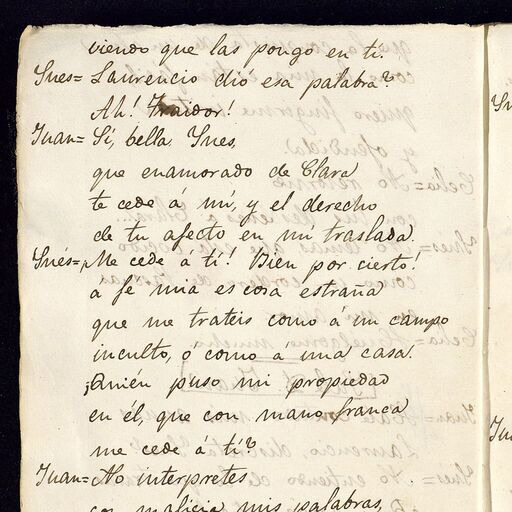 viendo que las pongo en tí.
Ines= Laurencio dió esa palabra?
Ah! Traidor!
Juan= Sí, bella Ines,
que enamorado de Clara
te cede á mí, y el derecho
de tu afecto en mi traslada.
Inés= ¡Me cede á tí! Bien por cierto!
a fe mia es cosa estraña
que me trateis como á un campo
inculto, o como a una casa.
¿Quién puso mi propiedad
en él, que con mano franca
me cede á tí?
Juan= No interpretes
con malicia mis palabras,